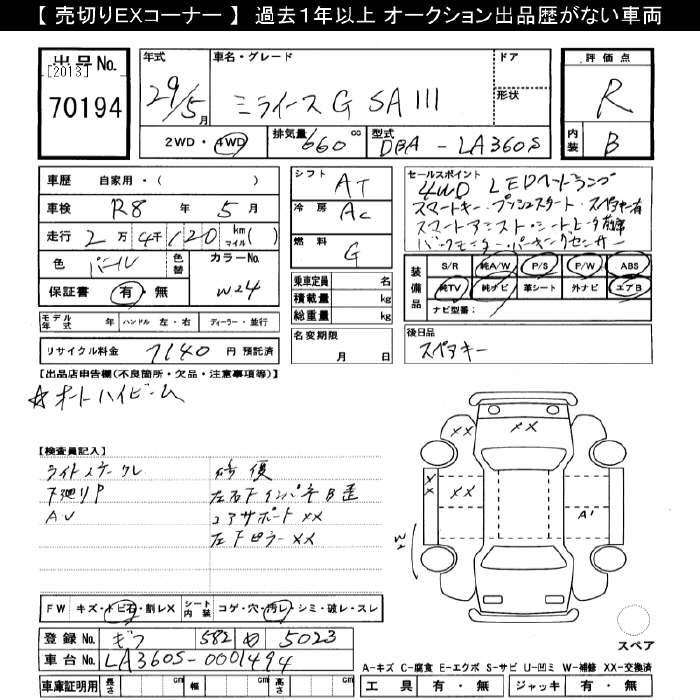 【 売切りEXコーナー 】 過去1年以上 オークション出品歴がない車両
出品No. [2013] 70194
年式 29/5月
車名・グレード ミライース G SAIII
ドア
形状
評価点 R
内装 B
2WD・4WD 排気量 660 cc 型式 DBA - LA360S
車歴 自家用・( )
車検 R8 年 5 月
走行 2万4千120 km マイル( )
色 パール 色替 カラーNo. W24
保証書 有・無
モデル年式 年 ハンドル 左・右 ディーラー・並行
リサイクル料金 7140 円 預託済
シフト AT
冷房 AC
燃料 G
乗車定員 名
積載量 kg
総重量 kg
名変期限 月 日
セールスポイント
4WD LEDヘッドランプ
スマートキー・プッシュスタート・スペアキー有
スマートアシスト・シートヒータ前席
バックモニター・パーキングセンサー
装備品 S/R 純A/W P/S P/W ABS
純TV 純ナビ 革シート 外ナビ エアB
ナビ型番:
後日品
スペアキー
【出品店申告欄(不良箇所・欠品・注意事項等)】
☆オートハイビーム
【検査員記入】
修復
下廻りP 左右下インパネB歪
AV コアサポートXX
左下ピラーXX
XX XX
XX XX
A'
FW キズ・トビ石・割レX シート内装 コゲ・穴・汚レ・シミ・破レ・スレ
登録No. ギフ 582 め 5023
車台No. LA360S-0001494
車庫証明用 長さ cm 幅 cm 高さ cm
スペア
A-キズ C-腐食 E-エクボ S-サビ U-凹ミ W-補修 XX-交換済
工具 有・無 ジャッキ 有・無